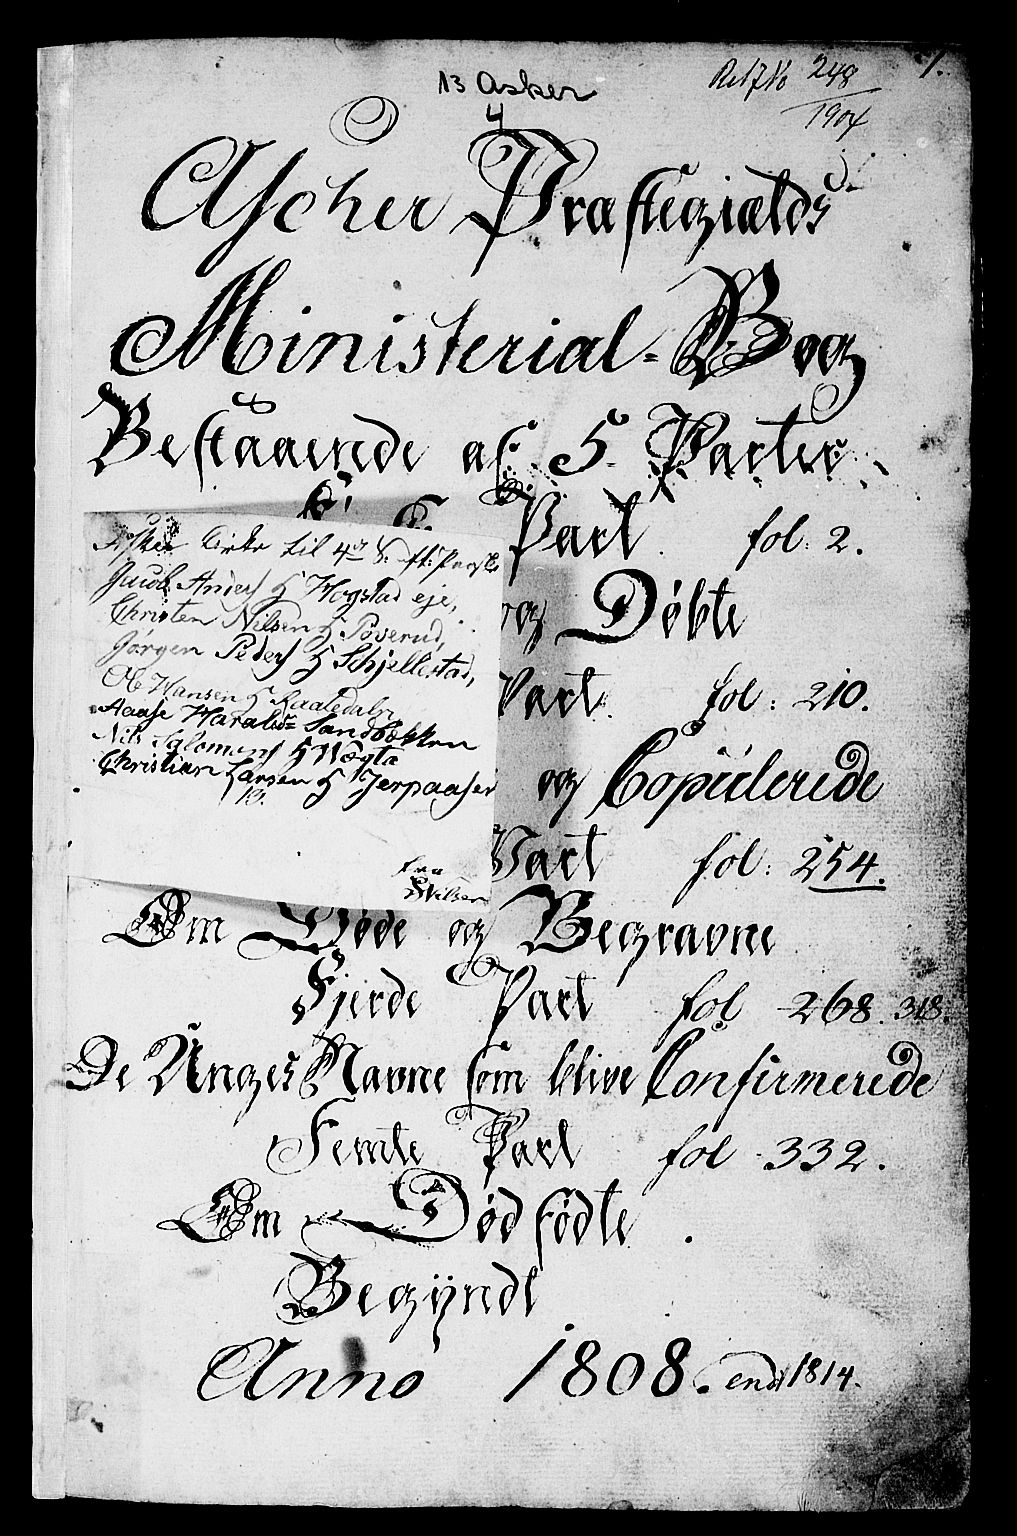 13 Asker
4
248
1904
1.
Ascher Præstegiælds
Ministerial-Bog
Bestaaende af 5 Parter
Part fol: 2.
og Døbte
Part fol: 210.
og Copulerede
Part fol: 254.
Om Døde og Begravne
Fjerde Part fol 268. 318.
De Unges Navne som blive Confirmerede
Femte Part fol 332.
Om Død fødte.
Begyndt
Anno 1808. endt 1814.
Asker Kirke til 4de S.
Jacob Anders H Hogstad eje,
Christen Nilsen H Poverud,
Jørgen Peders H Schjellestad,
Ole Hansen H
Aaase Haralds Sandbækken
Nils Salomons H
Christian Larsen H Jerpaaser
13.
fra
Nilsen